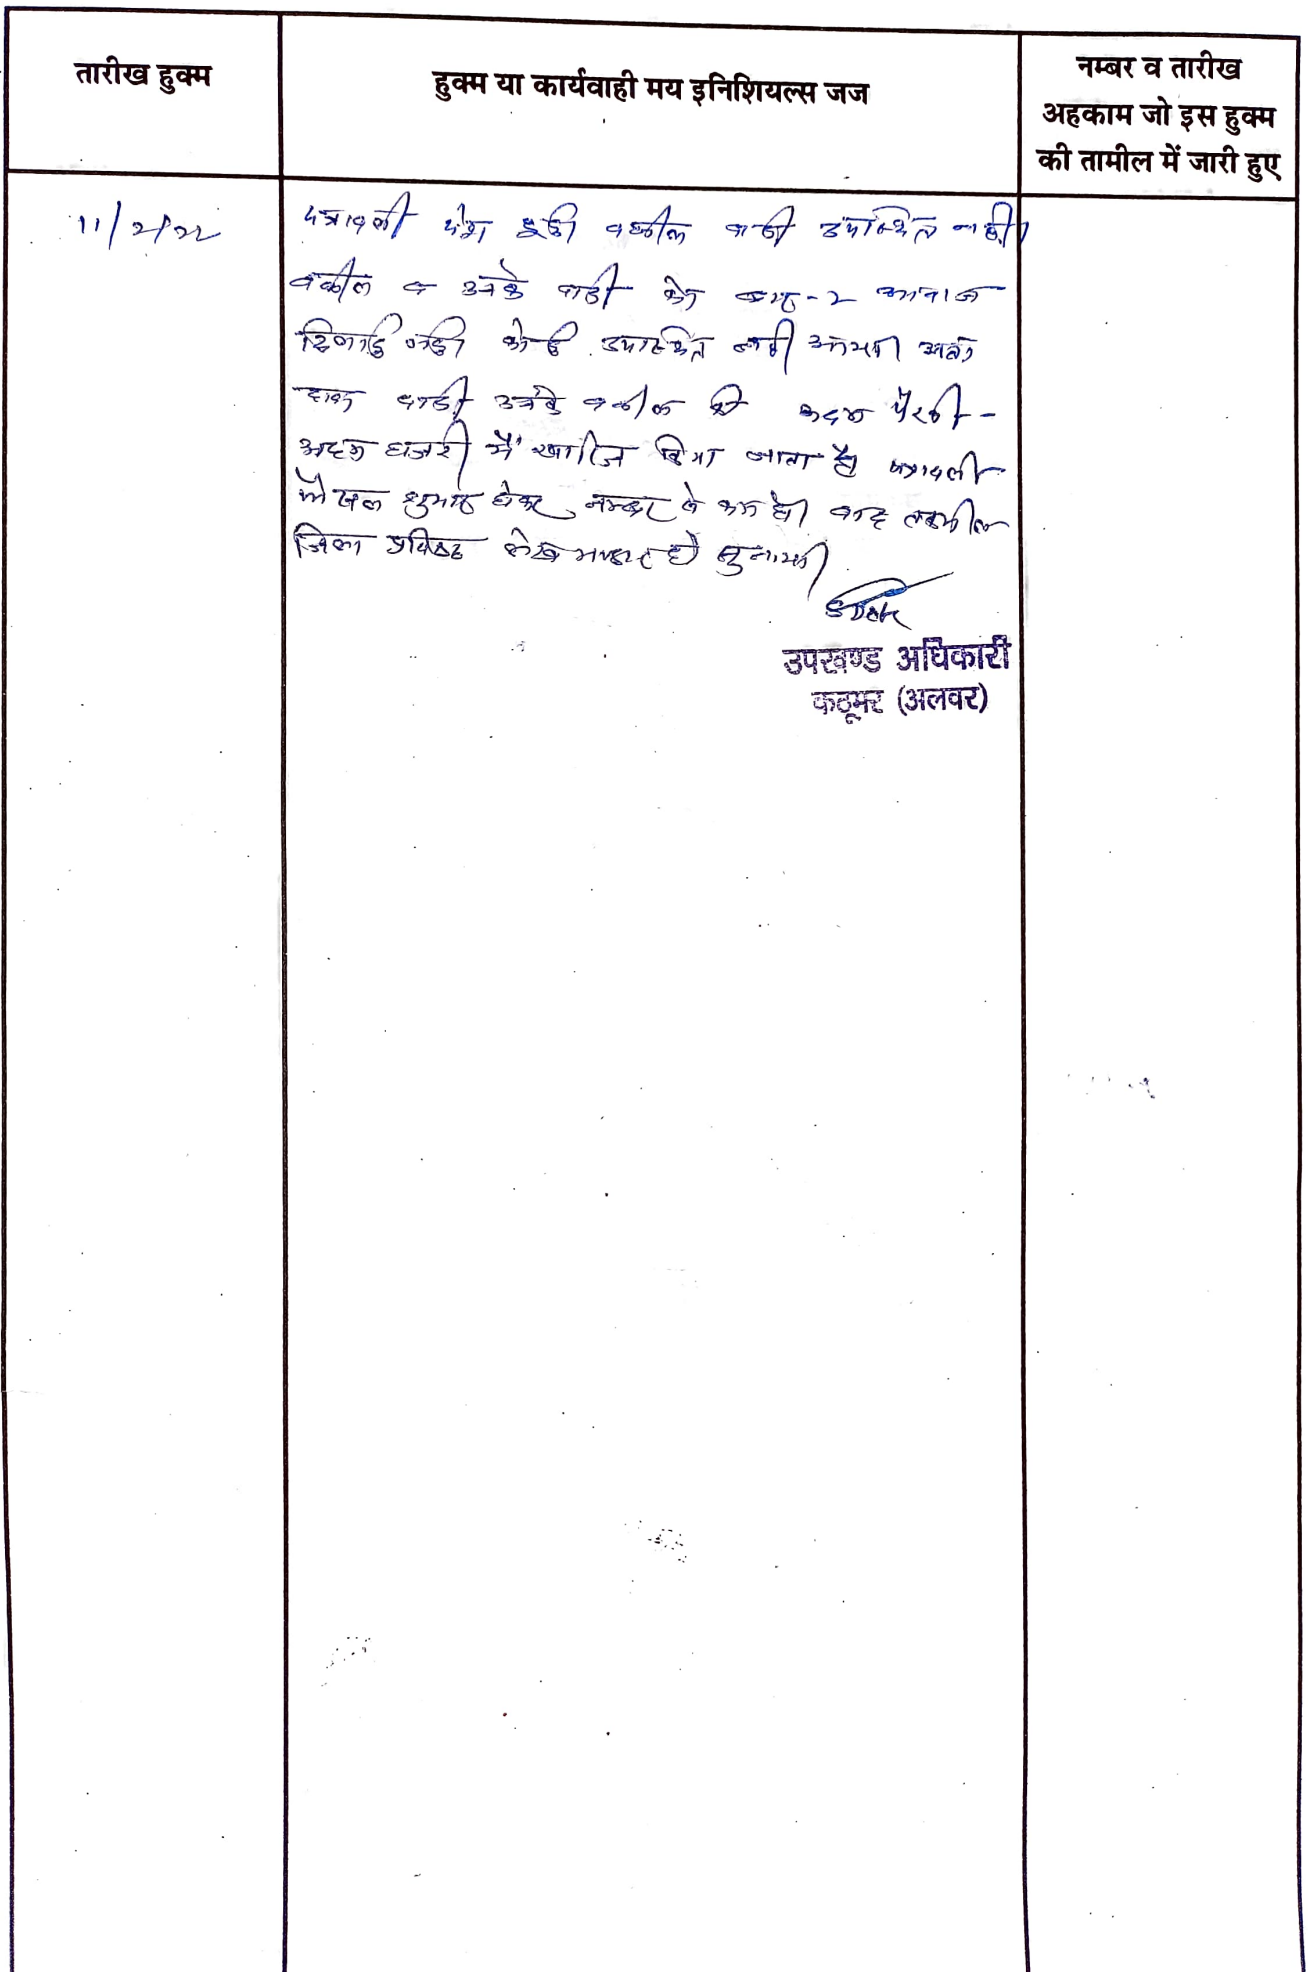 तारीख हुक्म
हुक्म या कार्यवाही मय इनिशियल्स जज
नम्बर व तारीख
अहकाम जो इस हुक्म
की तामील में जारी हुए
11/2/22
पत्रावली पेश हुई वकील वादी उपस्थित नहीं
वकील व उनके वादी को बार-2 आवाज
दिलाई गई कोई उपस्थित नहीं आया अतः
दावा वादी उनके वकील की अदम पैरवी -
अदम हाजरी में खारिज किया जाता है पत्रावली
फैसल शुमार होकर नम्बर से कम हो बाद तकमील
जिला अभिलेख हो सुनाया
उपखण्ड अधिकारी
कठूमर (अलवर)